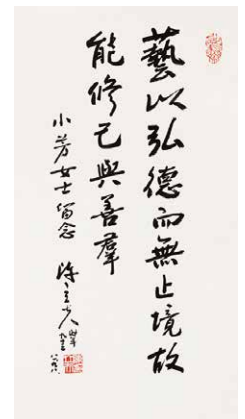 藝以弘德而無止境故
能修己與善羣
小芳女士留念
陳立夫